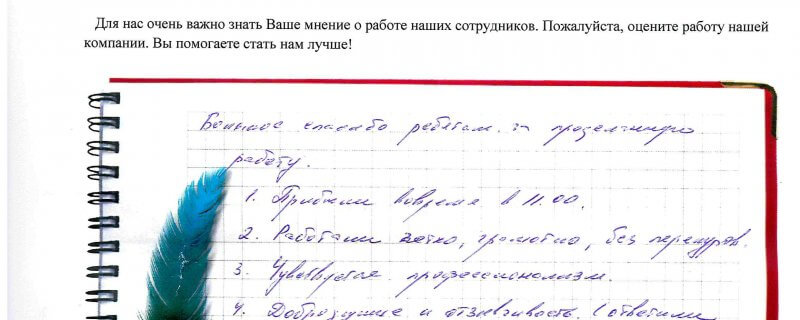 Для нас очень важно знать Ваше мнение о работе наших сотрудников. Пожалуйста, оцените работу нашей
компании. Вы помогаете стать нам лучше!
Большое спасибо ребятам за проделанную
работу.
1. Прибыли вовремя в 11.00.
2. Работали четко, грамотно, без перекуров.
3. Чувствуется профессионализм.
4. Добродушие и отзывчивость. (ответили